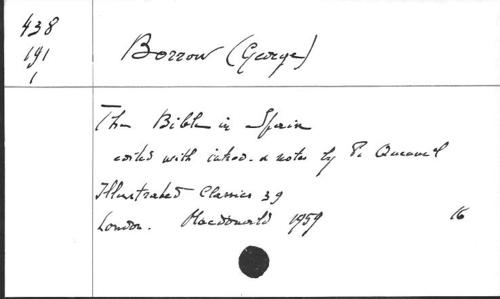 438
191
1
Borrow (George)
The Bible in Spain
edited with introd. & notes by P. Quennel
Illustrated Classics 39
London. Macdonald 1959
16